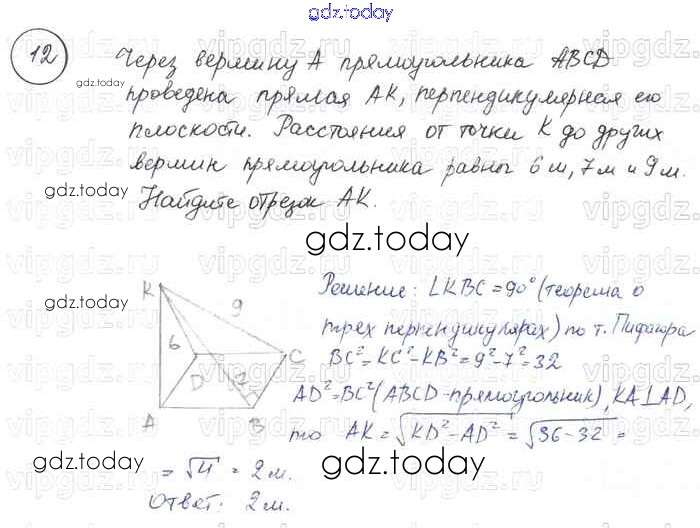 gdz.today
12 Через вершину A прямоугольника ABCD
gdz.today
проведена прямая AK, перпендикулярная его
плоскости. Расстояния от точки K до других
вершин прямоугольника равног 6 м, 7 м и 9 м.
gdz.today
Найдите отрезок AK.
gdz.today
K
9
6
7
D
C
A
B
Решение: ∠KBC = 90° (теорема о
трех перпендикулярах) по т. Пифагора
BC² = KC² - KB² = 9² - 7² = 32
gdz.today
AD² = BC² (ABCD - прямоугольник), KA⊥AD,
то AK = √KD² - AD² = √36 - 32 =
gdz.today
gdz.today
= √4 = 2 м.
Ответ: 2 м.
gdz.today